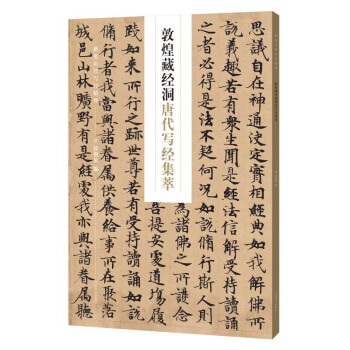 思議自在神通決定實相經典如我解佛所
說義趣若有衆生聞是經法信解受持讀誦
必得是法不疑何況如說修行斯人則
敦煌藏经洞唐代写经集萃
諸佛之所護念
菩提安處道場履
踐如來所行之跡世尊若有受持讀誦如說
修行者我當與諸眷屬供養給事所在聚落
城邑山林曠野有是經處我亦與諸眷屬聽